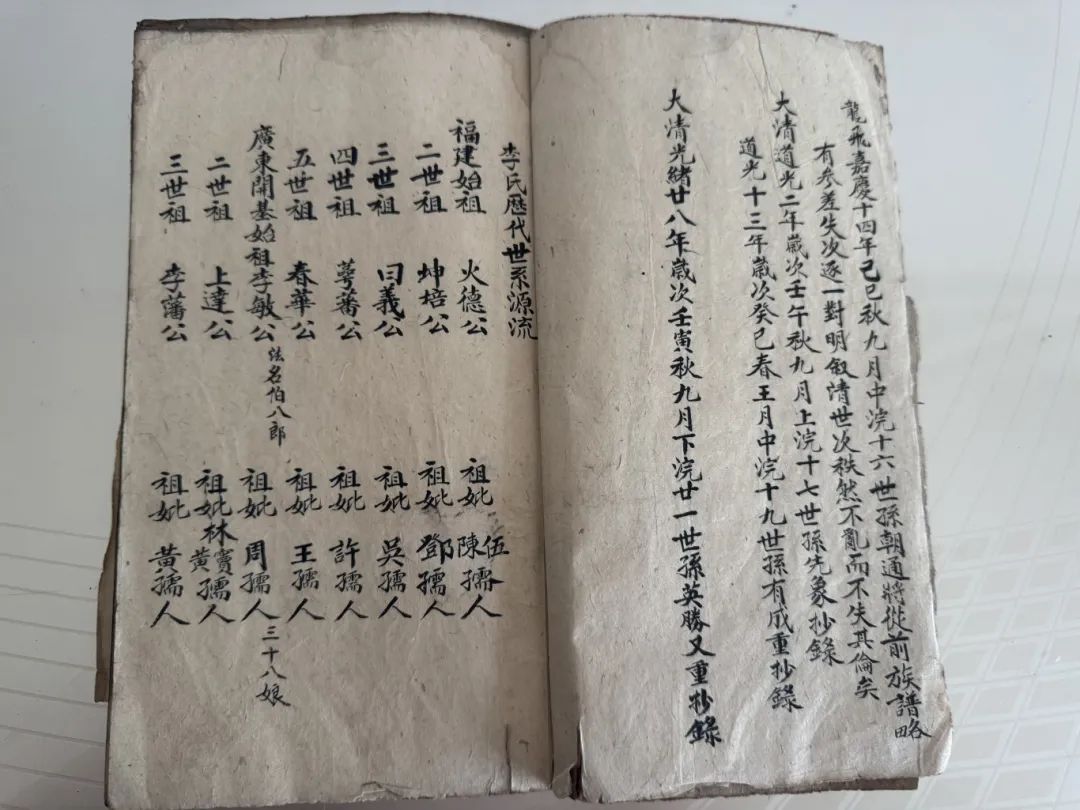 龍飛嘉慶十四年己巳秋九月中浣十六世孫朝通將從前族譜略
有參差失次逐一對明叙清世次秩然不亂而不失其倫矣
大清道光二年歲次壬午秋九月上浣十七世孫先象抄錄
道光十三年歲次癸巳春王月中浣十九世孫有成重抄錄
大清光緒廿八年歲次壬寅秋九月下浣廿一世孫英勝又重抄錄
李氏歷代世系源流
福建始祖 火德公 祖妣 伍陳孺人
二世祖 坤培公 祖妣 鄧孺人
三世祖 曰義公 祖妣 吳孺人
四世祖 蕚蕃公 祖妣 許孺人
五世祖 春華公 祖妣 王孺人
廣東開基始祖李敏公 法名伯八郎 祖妣 周孺人 三十八娘
二世祖 上達公 祖妣 林寶黃孺人
三世祖 李藩公 祖妣 黃孺人